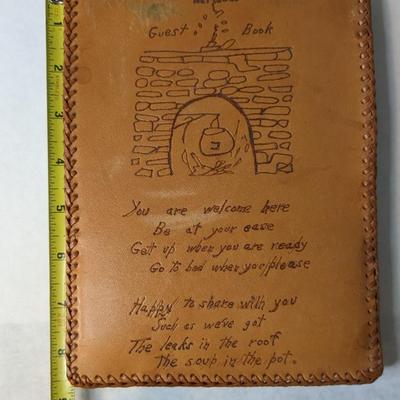 Guest Book
You are welcome here
Be at your ease
Get up when you are ready
Go to bed when you please
Happy to share with you
Such as we've got
The leaks in the roof
The soup in the pot.
1
2
3
4
5
6
7
8
9